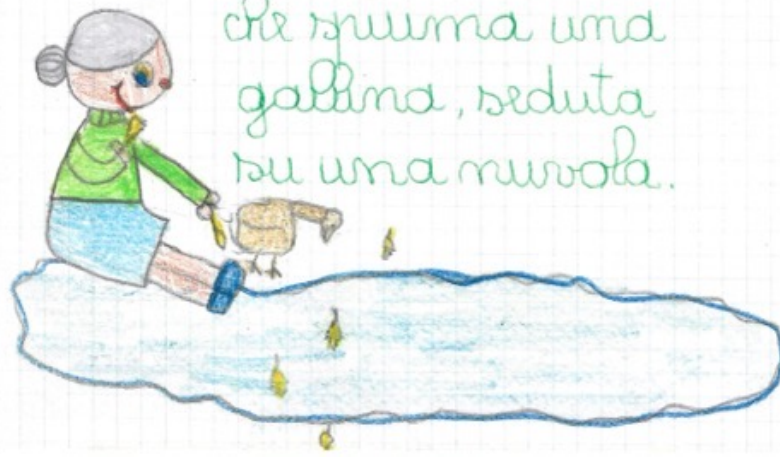 che spiuma una
gallina, seduta
su una nuvola.